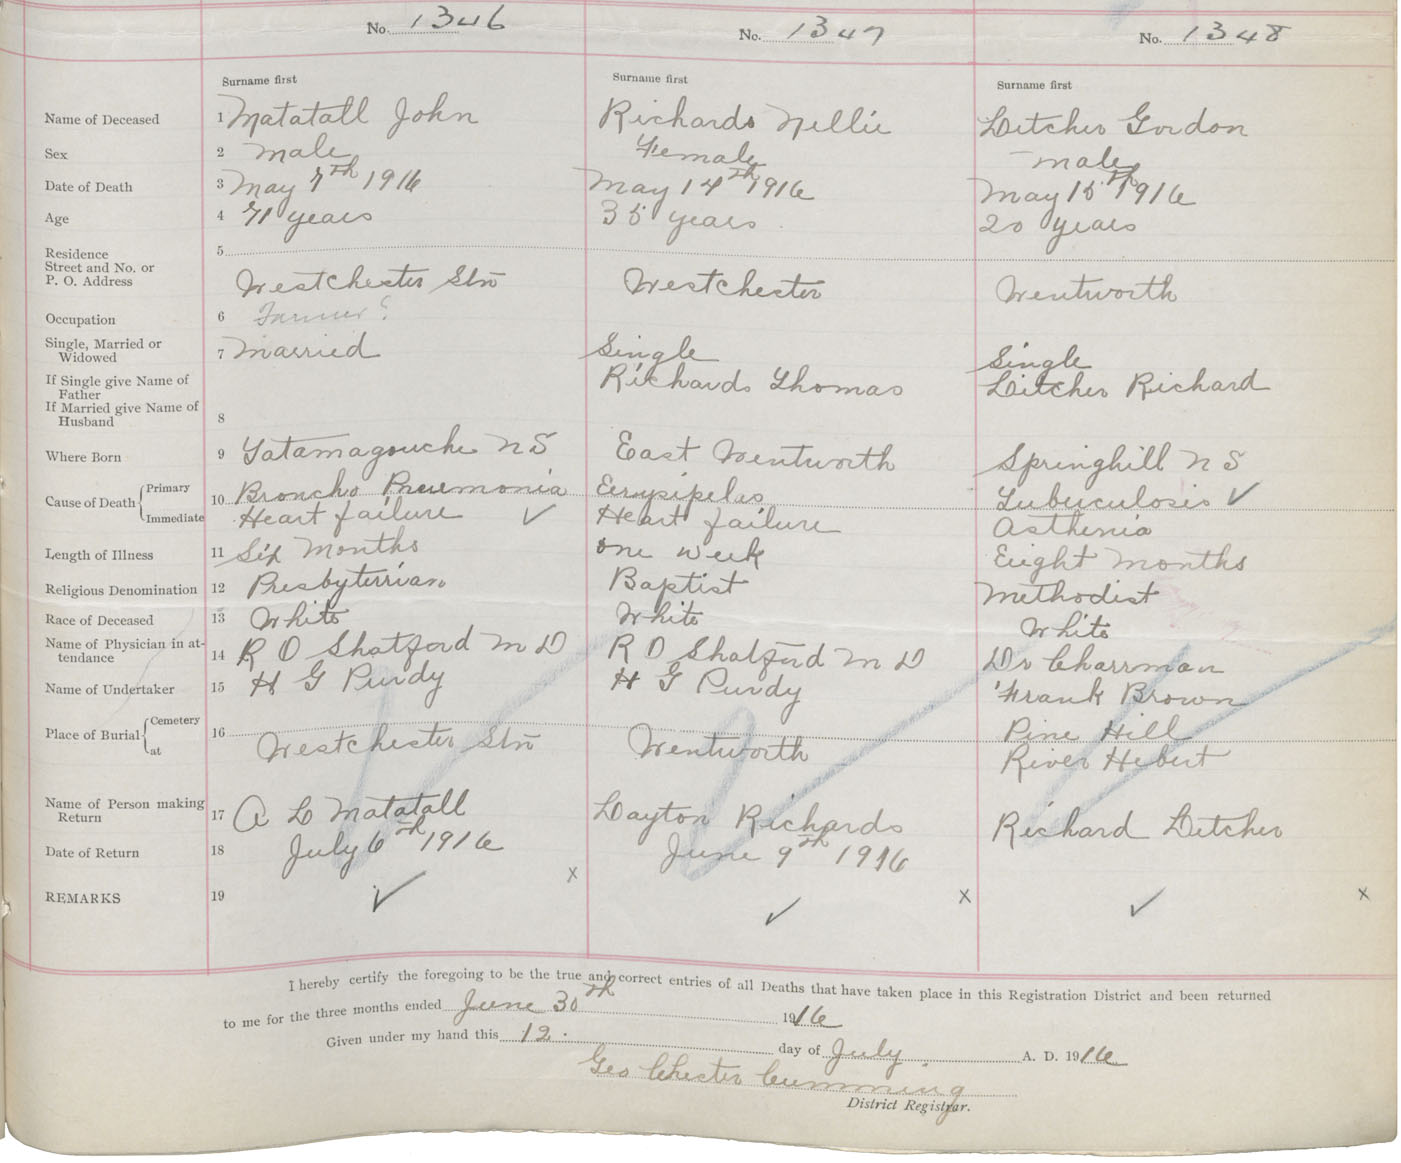 No. 1346 No. 1347 No. 1348
Surname first Surname first Surname first
Name of Deceased 1 Matatall John Richards Nellie Letcher Gordon
Sex 2 male Female male
Date of Death 3 May 7th 1916 May 14th 1916 May 15th 1916
Age 4 71 years 35 years 20 years
Residence 5
Street and No. or
P. O. Address Westchester Stn Westchester Wentworth
Occupation 6 Farmer?
Single, Married or
Widowed 7 married Single Single
If Single give Name of
Father Richards Thomas Letcher Richard
If Married give Name of
Husband 8
Where Born 9 Tatamagouche N S East Wentworth Springhill N S
Cause of Death Primary 10 Broncho Pneumonia Eerysipelas Tuberculosis ✓
Immediate Heart failure ✓ Heart failure Asthenia
Length of Illness 11 Six Months one week Eight Months
Religious Denomination 12 Presbyterrian Baptist Methodist
Race of Deceased 13 White White White
Name of Physician in at-
tendance 14 R O Shatford M D R O Shatford M D Dr Charrman
Name of Undertaker 15 H G Purdy H G Purdy Frank Brown
Place of Burial Cemetery 16 Pine Hill
at Westchester Stn Wentworth River Hebert
Name of Person making
Return 17 A L Matatall Layton Richards Richard Letcher
Date of Return 18 July 6th 1916 June 9th 1916
REMARKS 19 ✓ x ✓ x ✓ x
I hereby certify the foregoing to be the true and correct entries of all Deaths that have taken place in this Registration District and been returned
to me for the three months ended June 30th 1916
Given under my hand this 12. day of July A. D. 1916
Geo Chester Cumming
District Registrar.